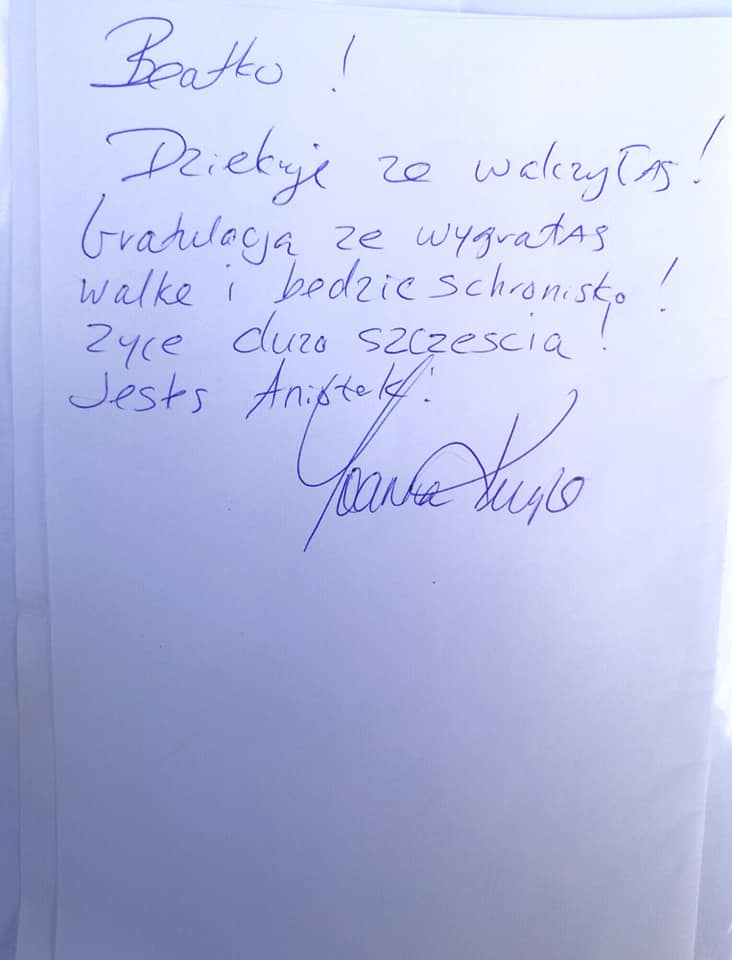 Beatko !
Dziekuje ze walczyłAs !
Gratulacją ze wygrałAs
walke i bedzie schronisko !
zyce duzo szczescia !
Jesteś Aniołek !